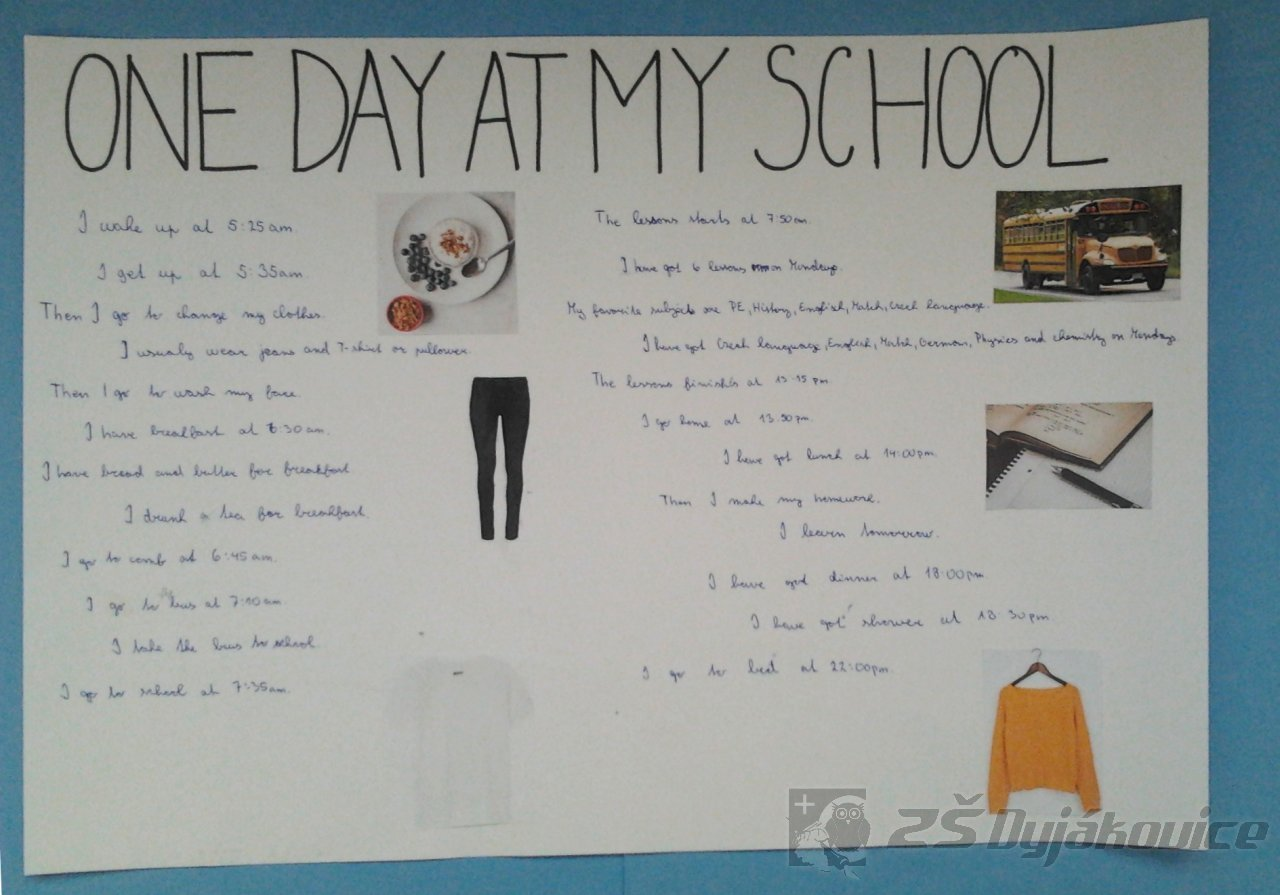 ONE DAY AT MY SCHOOL
I wake up at 5:25 am.
I get up at 5:35am.
Then I go to change my clothes.
I usually wear jeans and T-shirt or pullower.
Then I go to wash my face.
I have breakfast at 6:30 am.
I have bread and butter for breakfast
I drink a tea for breakfast.
I go to comb at 6:45 am.
I go to bus at 7:10 am.
I take the bus to school.
I go to school at 7:35 am.
The lessons starts at 7:50 am.
I have got 6 lessons on Mondays.
My favorite subjects are PE, History, English, Match, Czech language.
I have got Czech language, English, Match, German, Physics and chemistry on Mondays
The lessons finishes at 13:15 pm.
I go home at 13:50 pm.
I have got lunch at 14:00 pm.
Then I make my homework.
I learn tomorrow.
I have got dinner at 18:00 pm.
I have got shower at 18:30 pm
I go to bed at 22:00 pm.
ZŠ Dyjákovice